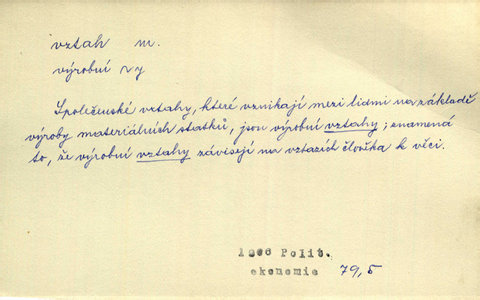 vztah m.
výrobní vy
Společenské vztahy, které vznikají mezi lidmi na základě
výroby materiálních statků, jsou výrobní vztahy; znamená
to, že výrobní vztahy závisejí na vztazích člověka k věci.
Polit.
ekonomie 79,5